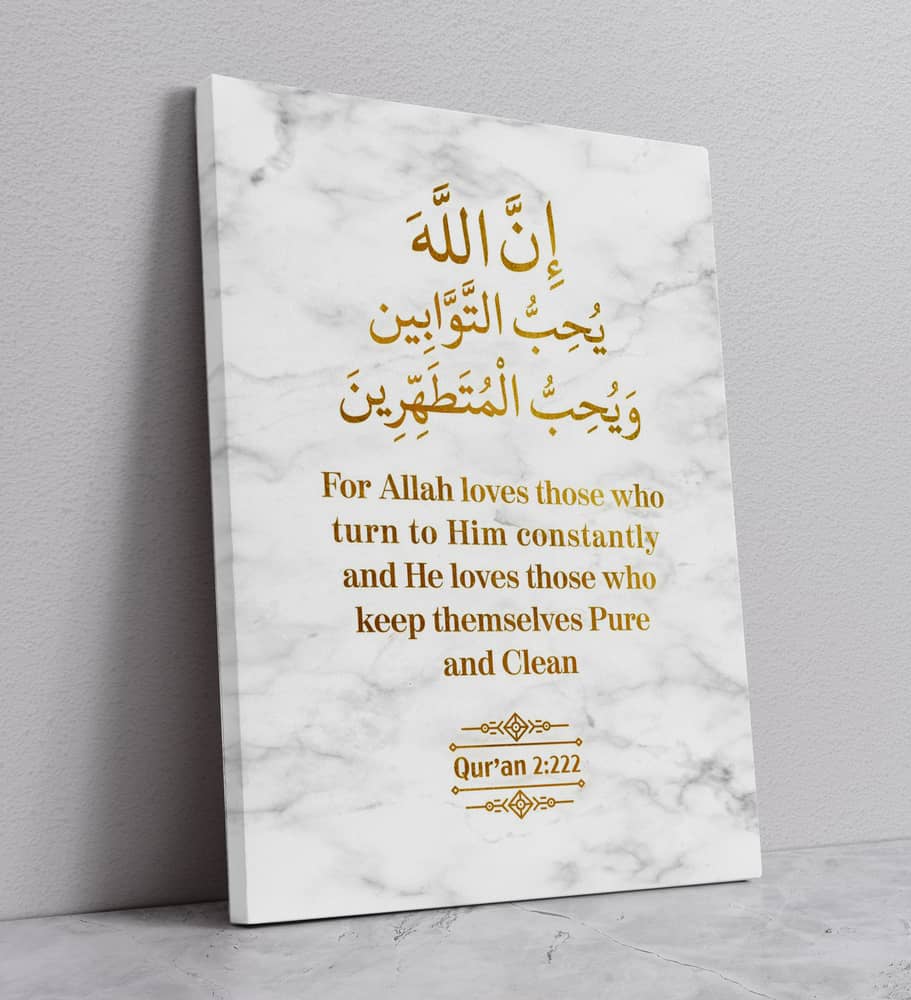 إِنَّ اللَّهَ
يُحِبُّ التَّوَّابِين
وَيُحِبُّ الْمُتَطَهِّرِينَ
For Allah loves those who
turn to Him constantly
and He loves those who
keep themselves Pure
and Clean
Qur'an 2:222